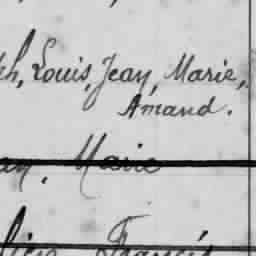 ph, Louis, Jean, Marie,
Amand.
an, Marie
lien Francis